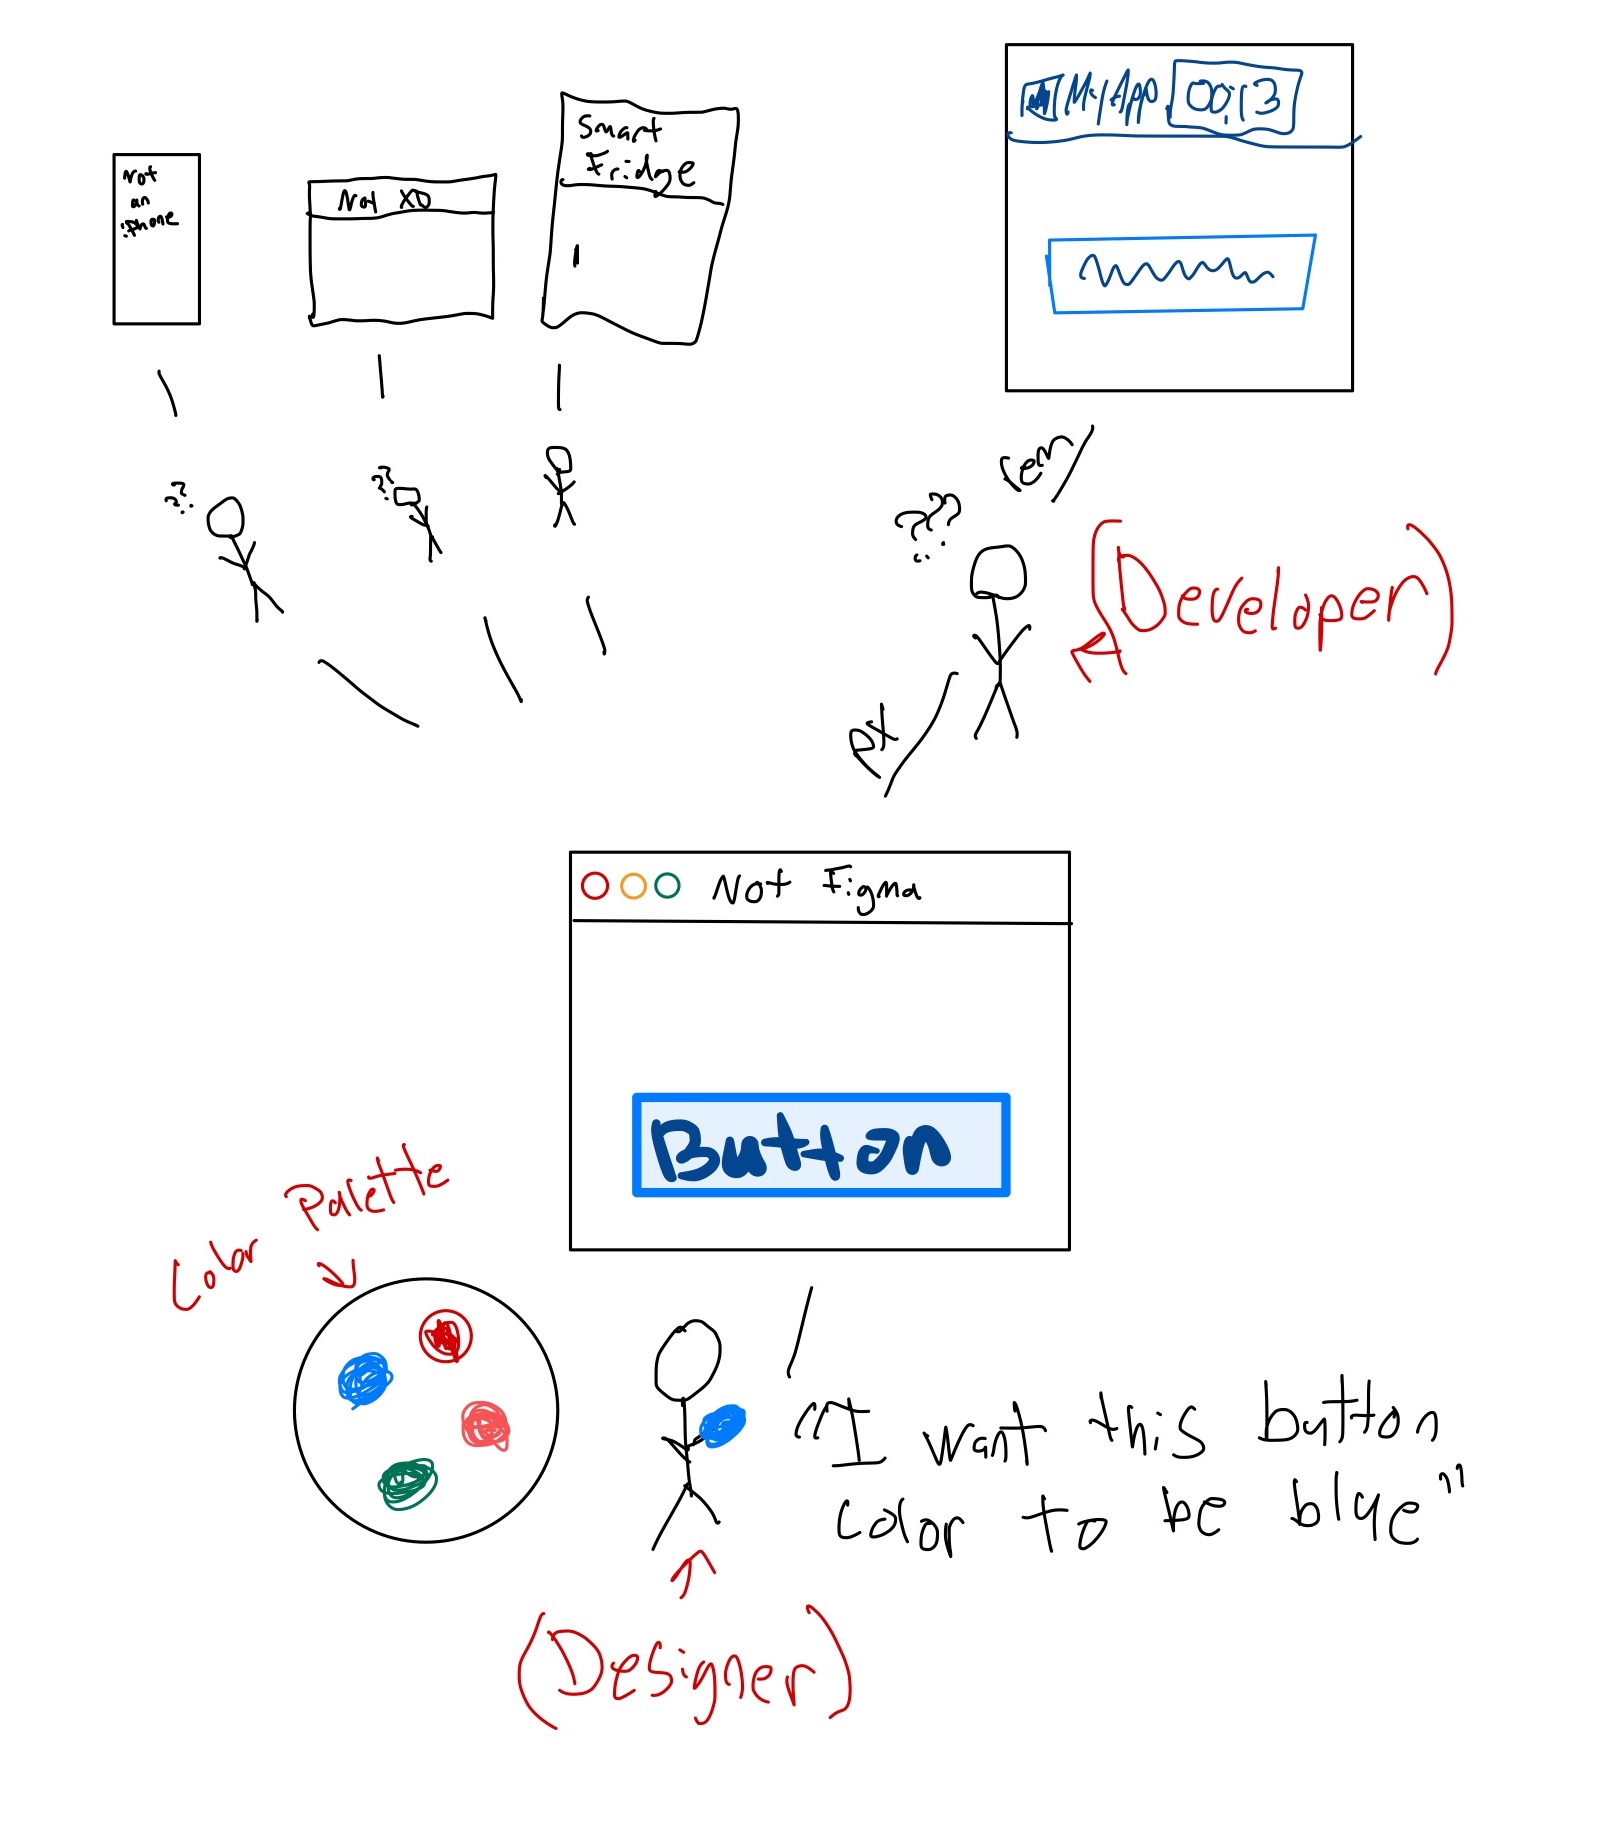 Not
an
iPhone
Not XD
Smart
Fridge
MyApp 00:13
??
??
???
rem
(Developer)
px
Not Figma
Button
Color Palette
"I want this button
color to be blue"
(Designer)